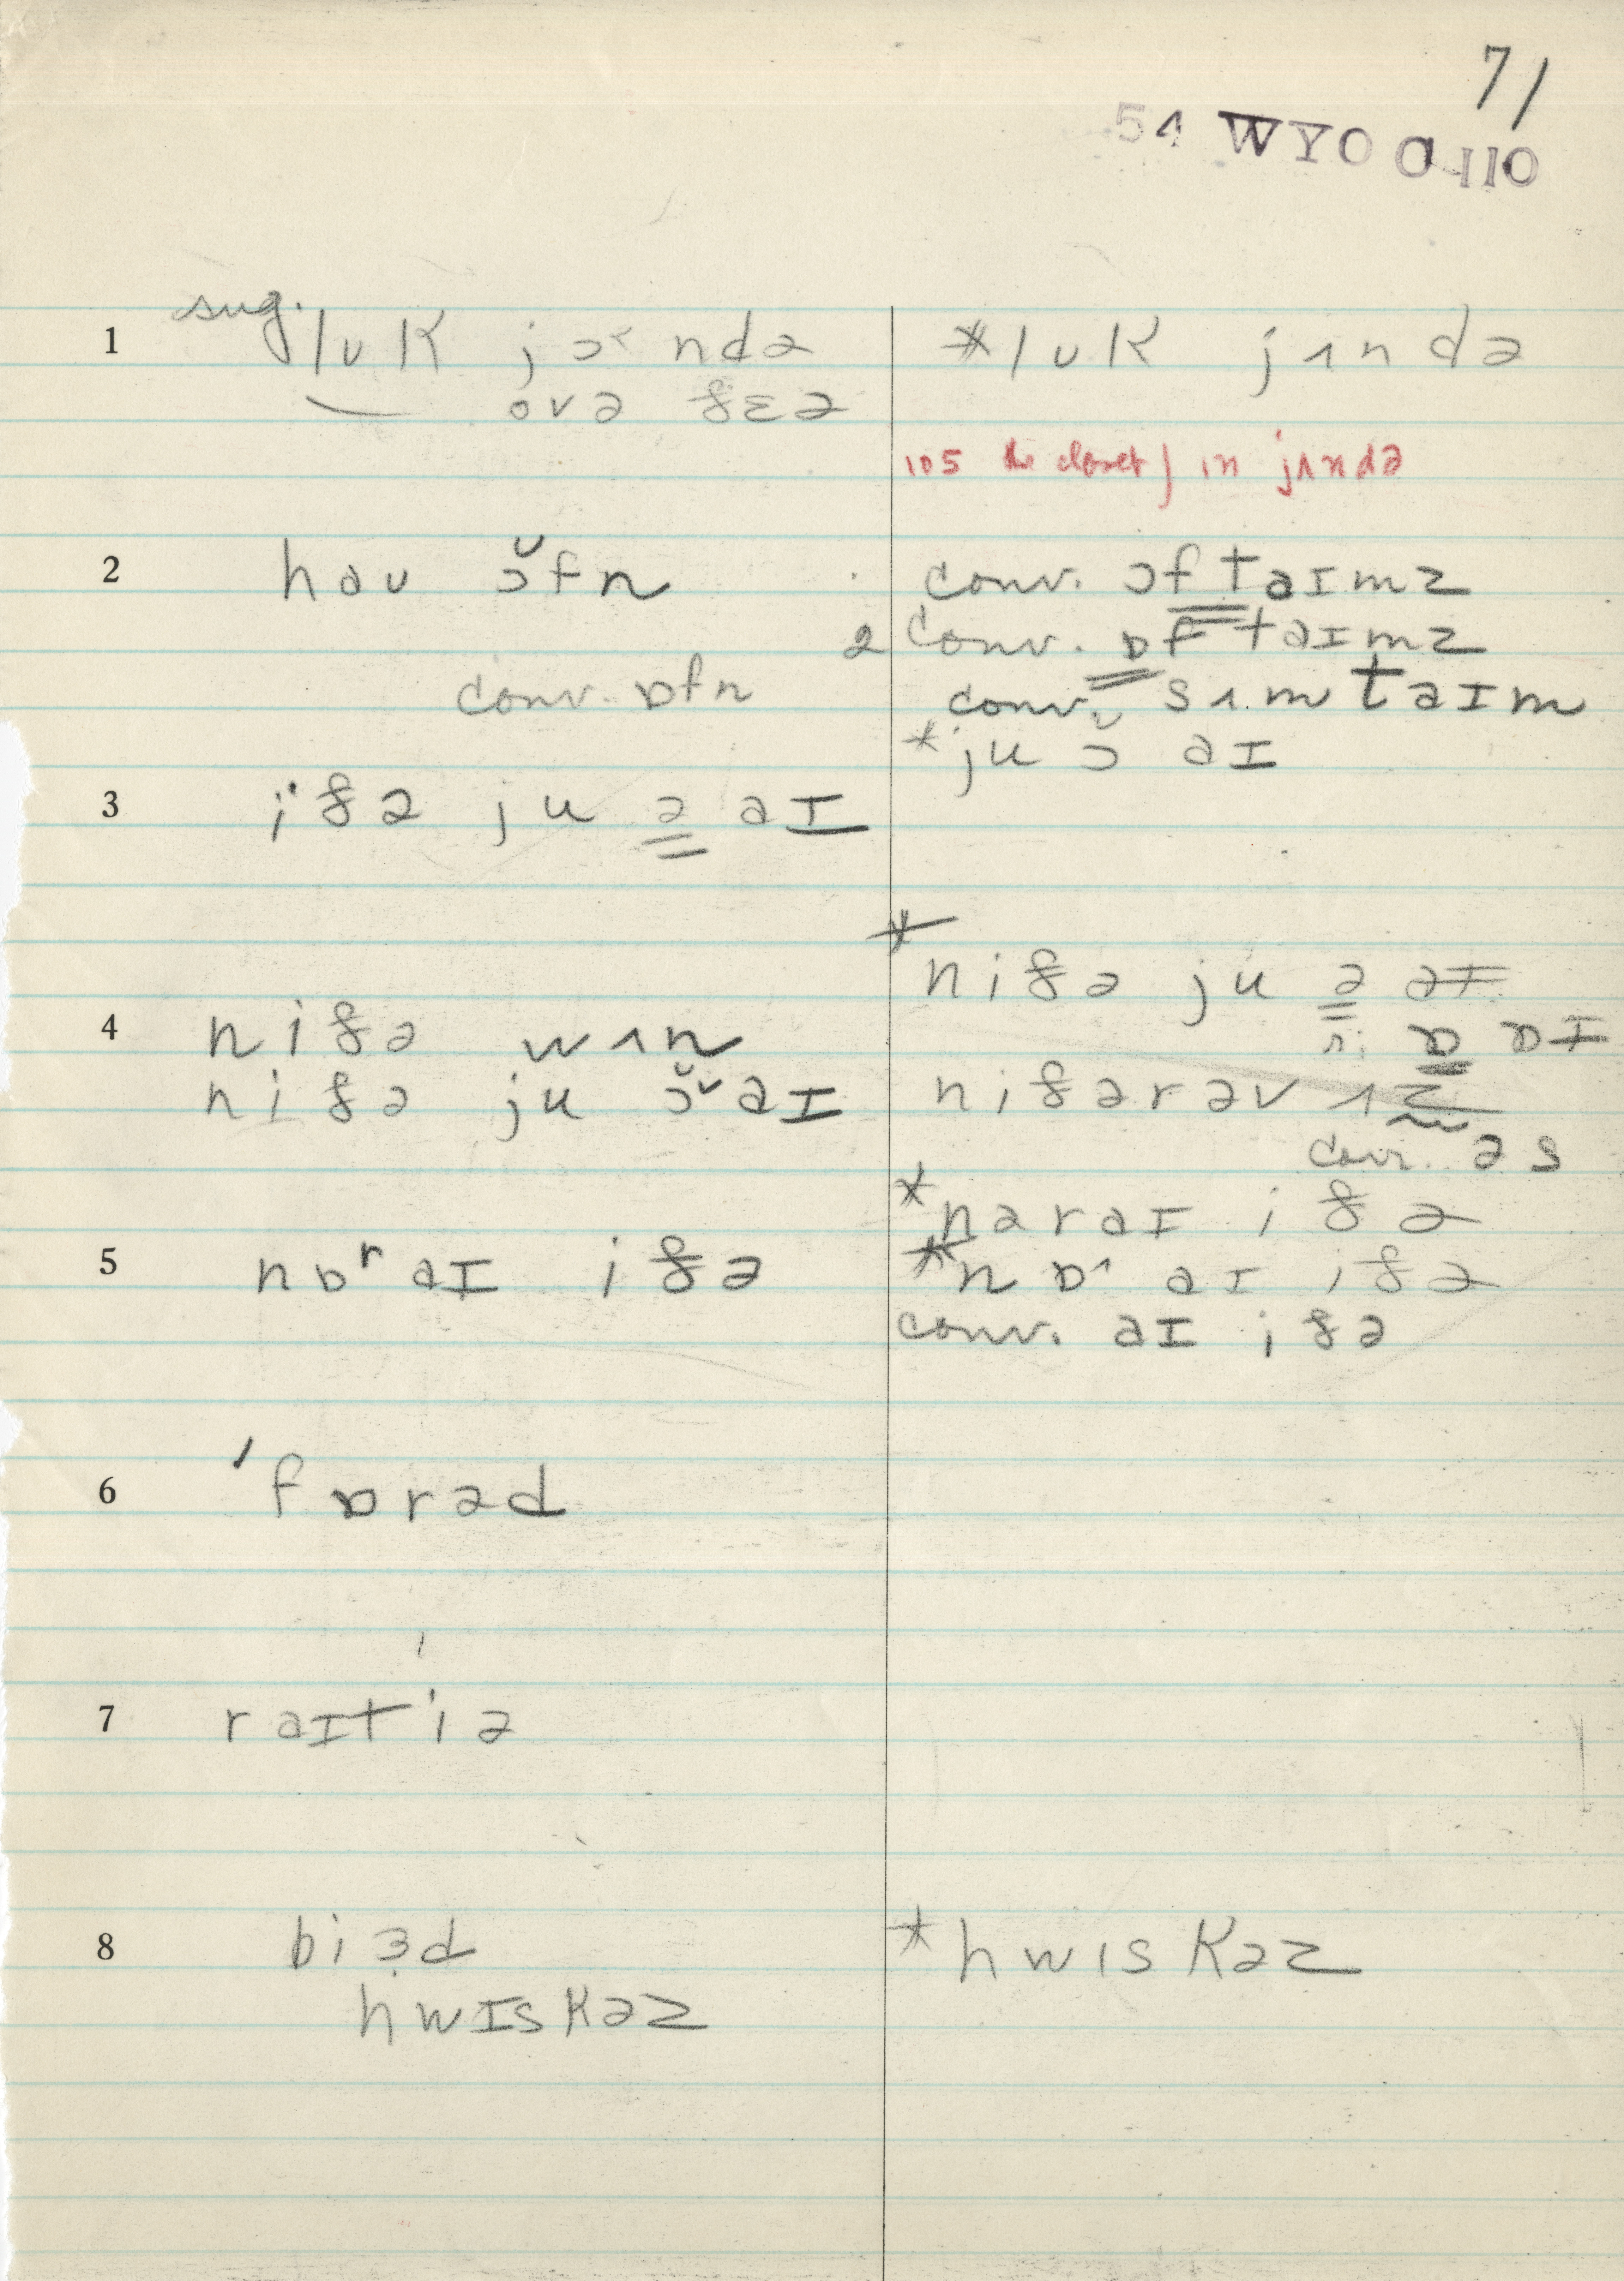 71
54 WYO O 110
sug. lʊk jɔ˂ndə
ovə ðɛə
*lʊk jʌndə
105 the closet} in jʌndə
1
2
haʊ ɔ̆fn
conv. ɒfn
conv. ɔftaɪmz
2 conv. ɒftaɪmz
conv. sʌmtaɪm
*ju ɔ̆ aɪ
3
iðə ju ə aɪ
4
niðə wʌn
niðə ju ɔ̆˅aɪ
*niðə ju ə
niðərəv ʌ
conv. əs
5
nɒʳaɪ iðə
*naraɪ iðə
*nɒ aɪ iðə
conv. aɪ iðə
6
ˈfɒrəd
7
raɪtˈiə
8
biɜd
hwɪskəz
*hwɪskəz